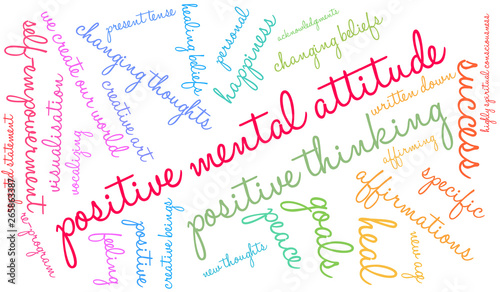 present tense
healing beliefs
personal
acknowledgments
we create our world
changing thoughts
happiness
changing beliefs
self-empowerment
visualisation
creative art
positive mental attitude
written down
success
highly spiritual consciousness
vocalizing
positive thinking
affirming
specific
program
feeling
positive
creative beings
new thoughts
peace
goals
heal
affirmations
new age
Adobe Stock